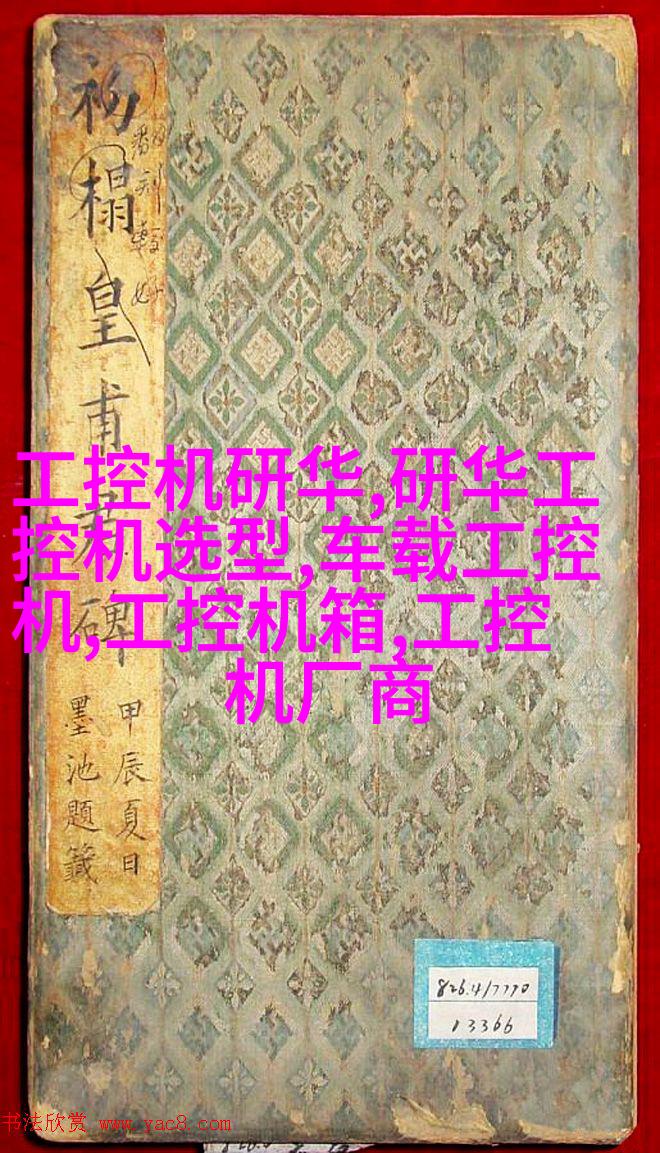 初榻皇甫君碑
翻刻較好
甲辰夏日
墨池題籤
工控机研华,研华工
控机选型,车载工控
机,工控机箱,工控
机厂商
826.4/7770
13366
书法欣赏 www.yac8.com